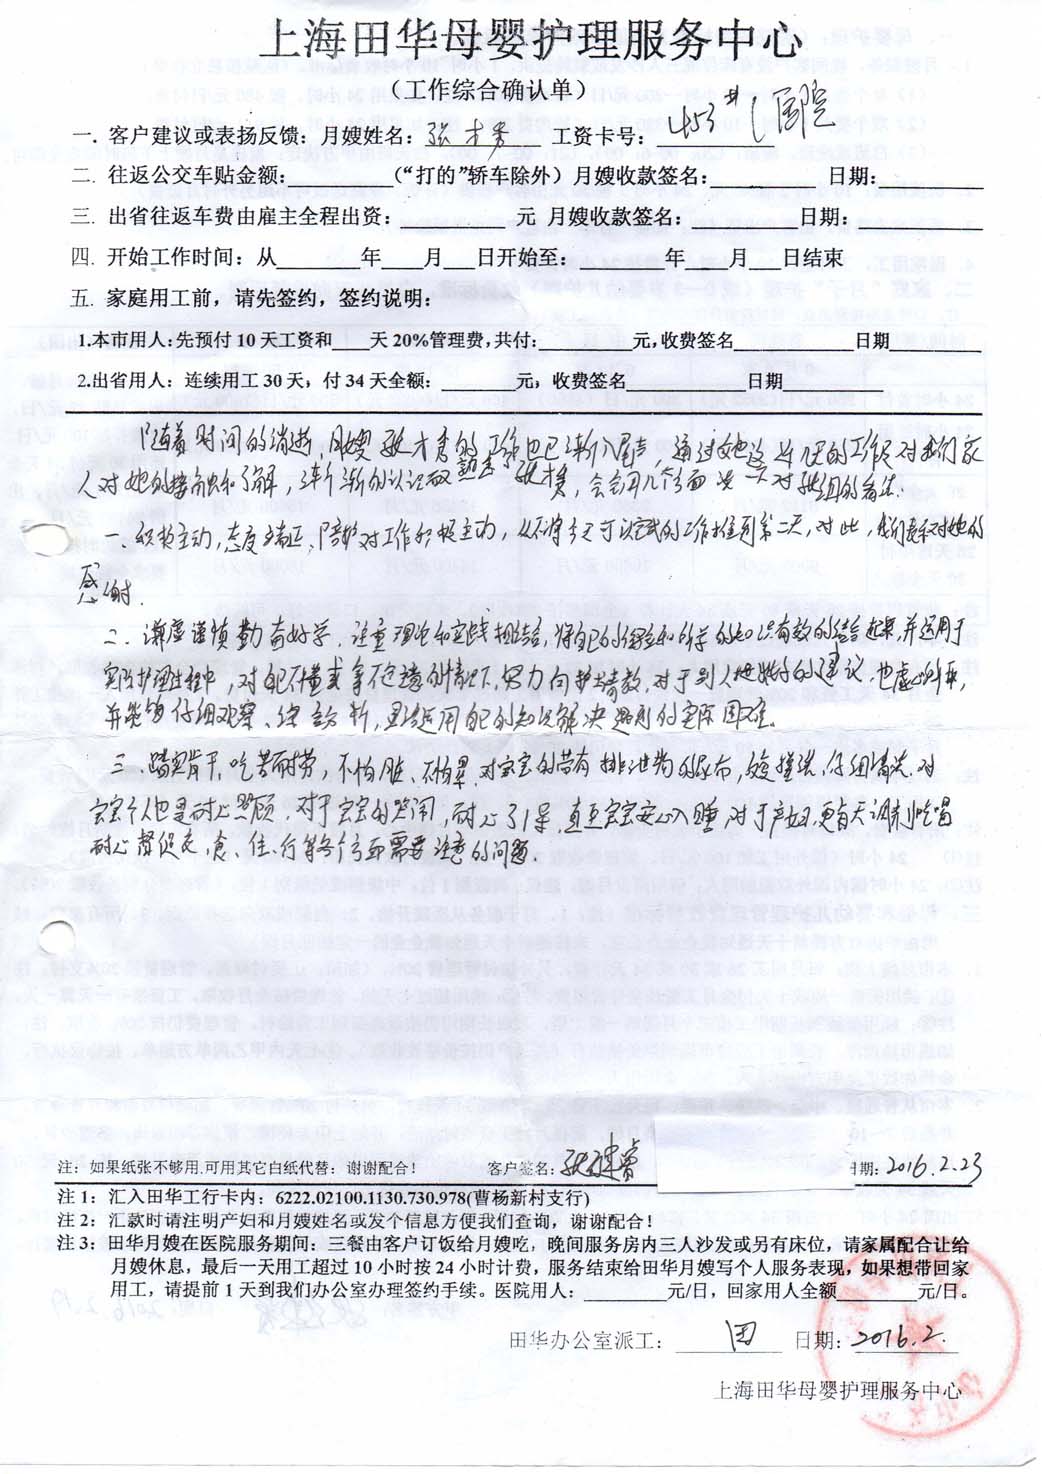 上海田华母婴护理服务中心
（工作综合确认单）
一. 客户建议或表扬反馈：月嫂姓名：张才秀 工资卡号：453# 医院
二. 往返公交车贴金额： （“打的”轿车除外）月嫂收款签名： 日期：
三. 出省往返车费由雇主全程出资： 元 月嫂收款签名： 日期：
四. 开始工作时间：从 年 月 日开始至： 年 月 日结束
五. 家庭用工前，请先签约，签约说明：
1.本市用人：先预付 10 天工资和 天 20%管理费，共付： 元，收费签名 日期
2.出省用人：连续用工 30 天，付 34 天全额： 元，收费签名 日期
随着时间的消逝，月嫂张才秀的工作也已渐入尾声，通过她这几天的工作及对我们家
人对她的接触和了解，渐渐的认识及熟悉了张才秀，会会用几个方面谈一下对张姐的看法：
一、积极主动，态度端正，陪护对工作积极主动，从不将今天可以完成的工作推到第二天，对此，我们表示对她的
感谢．
二、谦虚谨慎勤奋好学，注重理论和实践相结合，将自己的经验和所学的知识有效的结合起来，并运用于
实际护理过程中，对自己不懂或拿不定主意的情况下，努力向护士请教，对于别人她好的建议也虚心听取，
并能够仔细观察、综合分析，灵活运用自己的知识解决遇到的实际困难．
三、踏实肯干，吃苦耐劳，不怕脏、不怕累，对宝宝的带有排泄物的尿布，及时搓洗、仔细清洗，对
宝宝个人也是耐心照顾，对于宝宝的哭闹，耐心引导直至宝宝安心入睡，对于产妇，更每天调剂吃喝
耐心督促衣、食、住、行等各个方面需要注意的问题．
注：如果纸张不够用.可用其它白纸代替：谢谢配合！ 客户签名： 日期：2016.2.23
注 1：汇入田华工行卡内：6222.02100.1130.730.978(曹杨新村支行)
注 2：汇款时请注明产妇和月嫂姓名或发个信息方便我们查询，谢谢配合！
注 3：田华月嫂在医院服务期间：三餐由客户订饭给月嫂吃，晚间服务房内三人沙发或另有床位，请家属配合让给
月嫂休息，最后一天用工超过 10 小时按 24 小时计费，服务结束给田华月嫂写个人服务表现，如果想带回家
用工，请提前 1 天到我们办公室办理签约手续。医院用人： 元/日，回家用人全额 元/日。
田华办公室派工： 田 日期：2016.2.
上海田华母婴护理服务中心